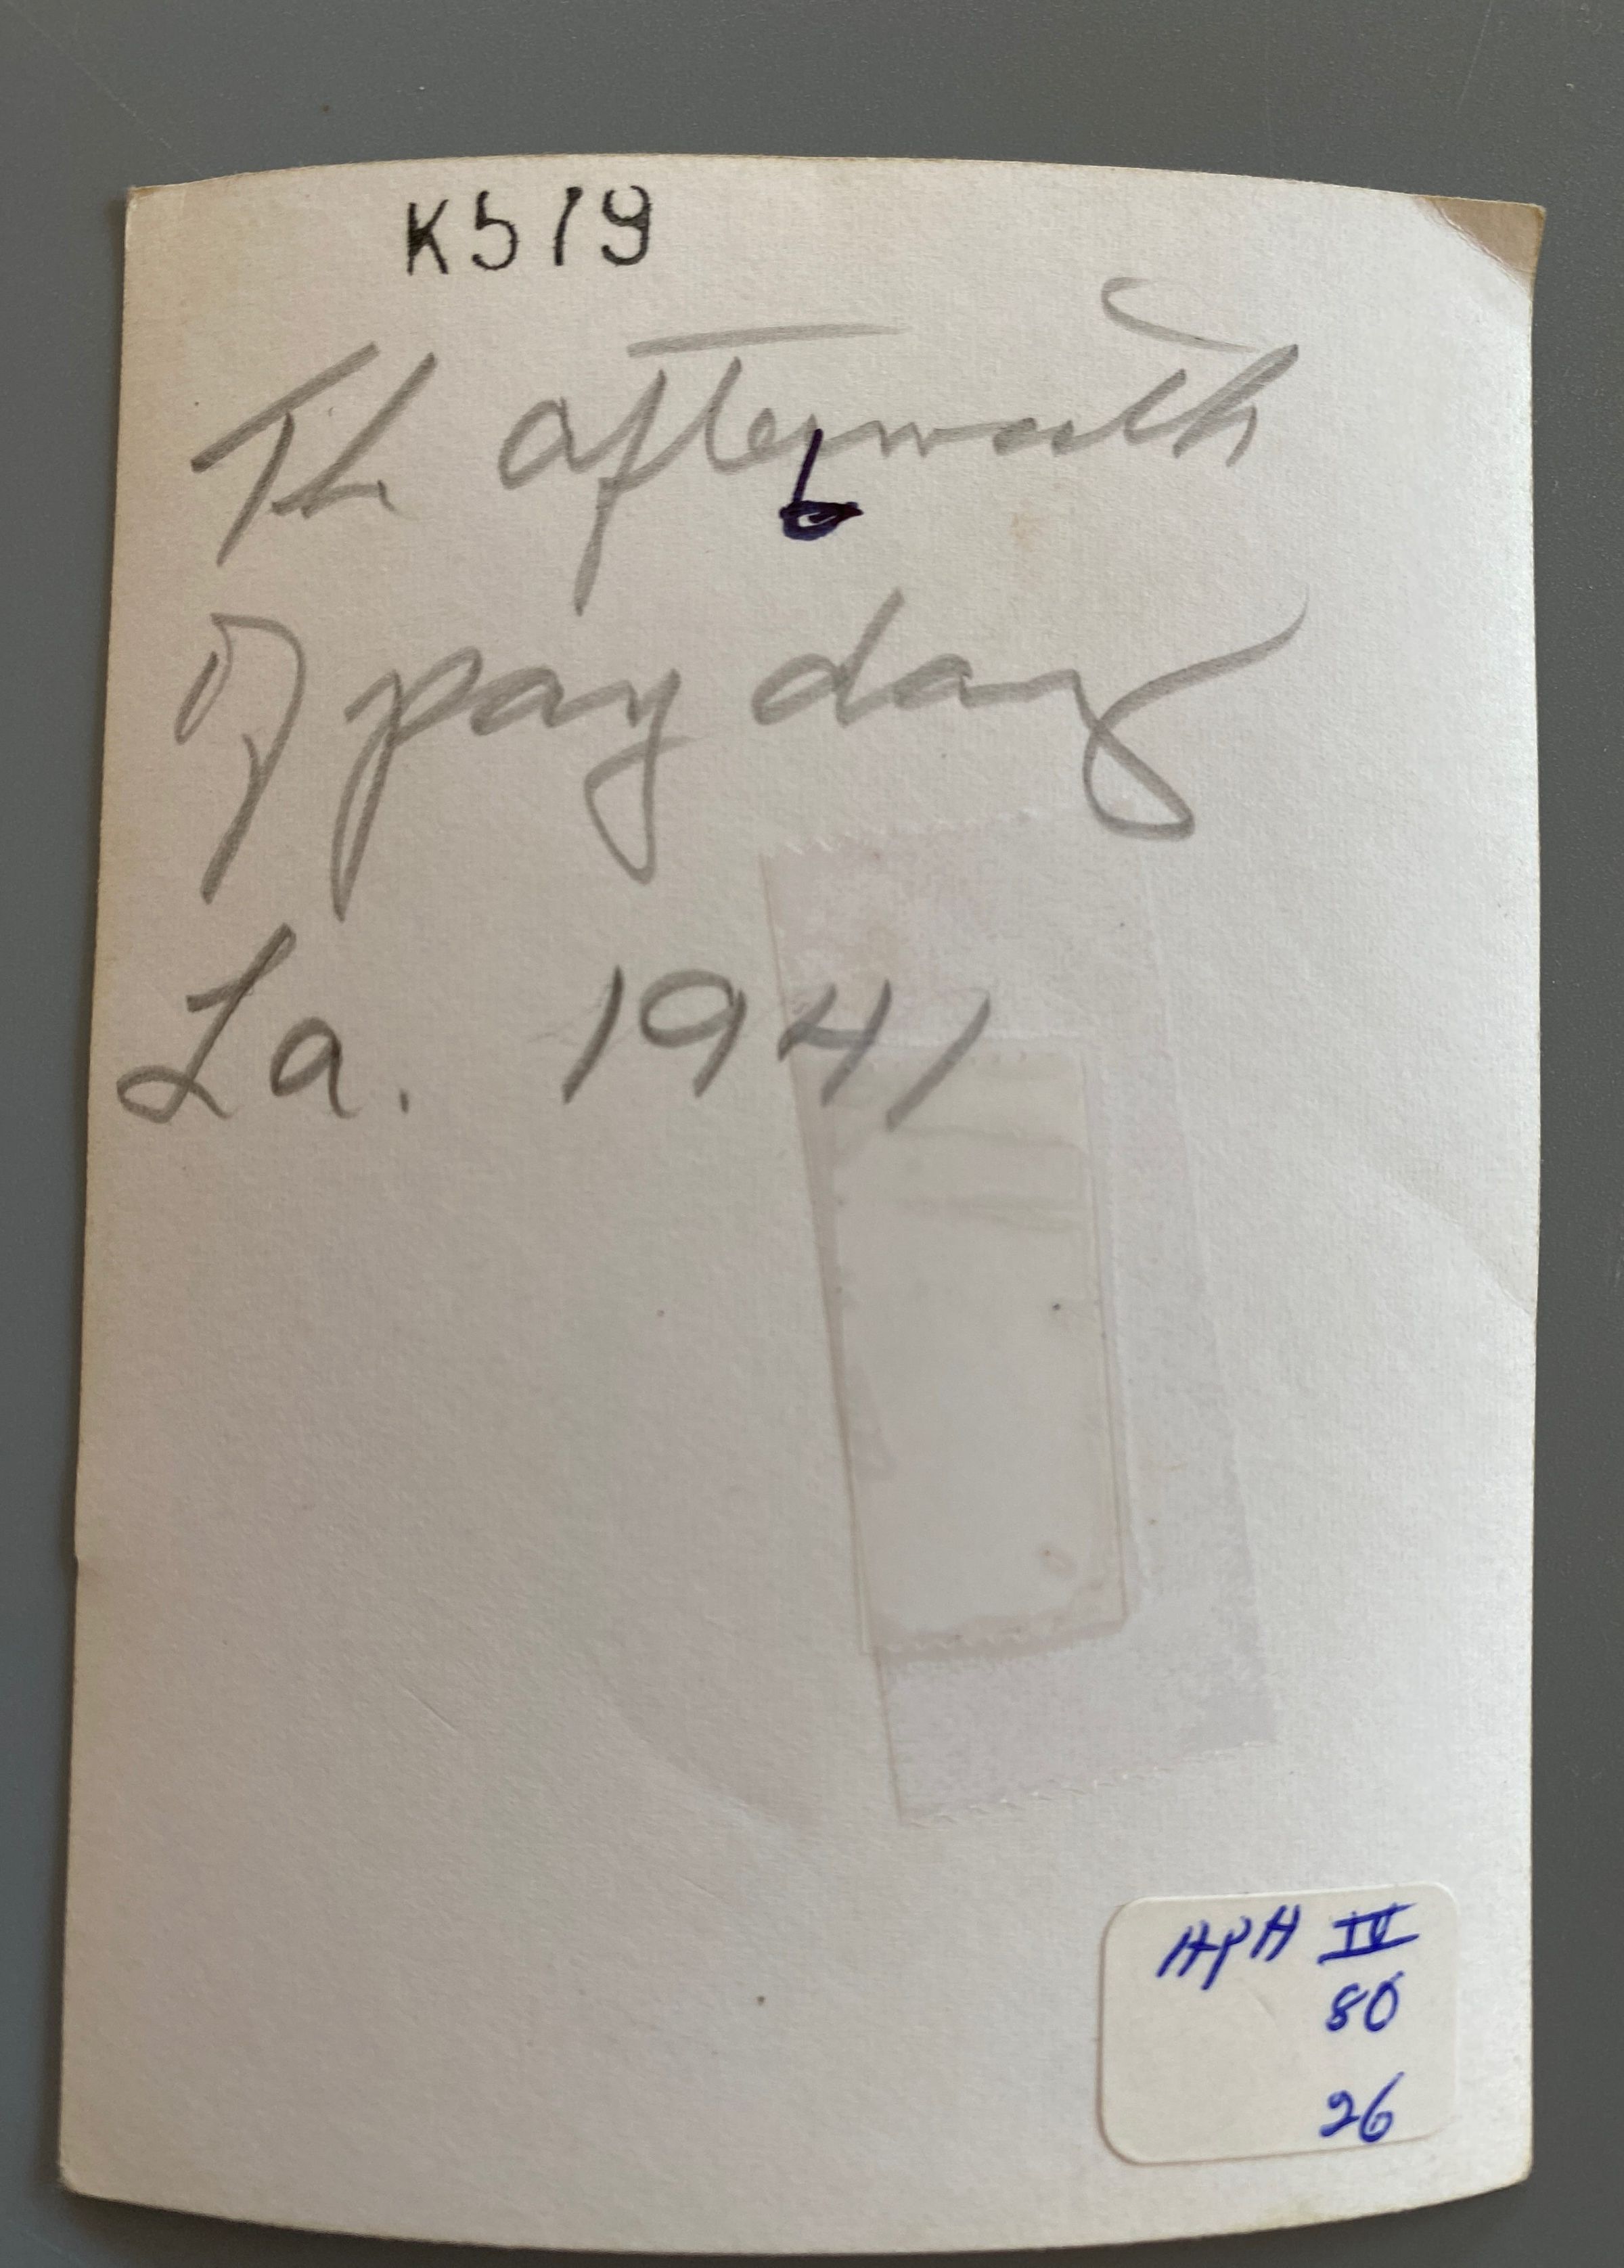 K519
The aftermath
6
of pay day
La. 1941
HPH IV
80
26